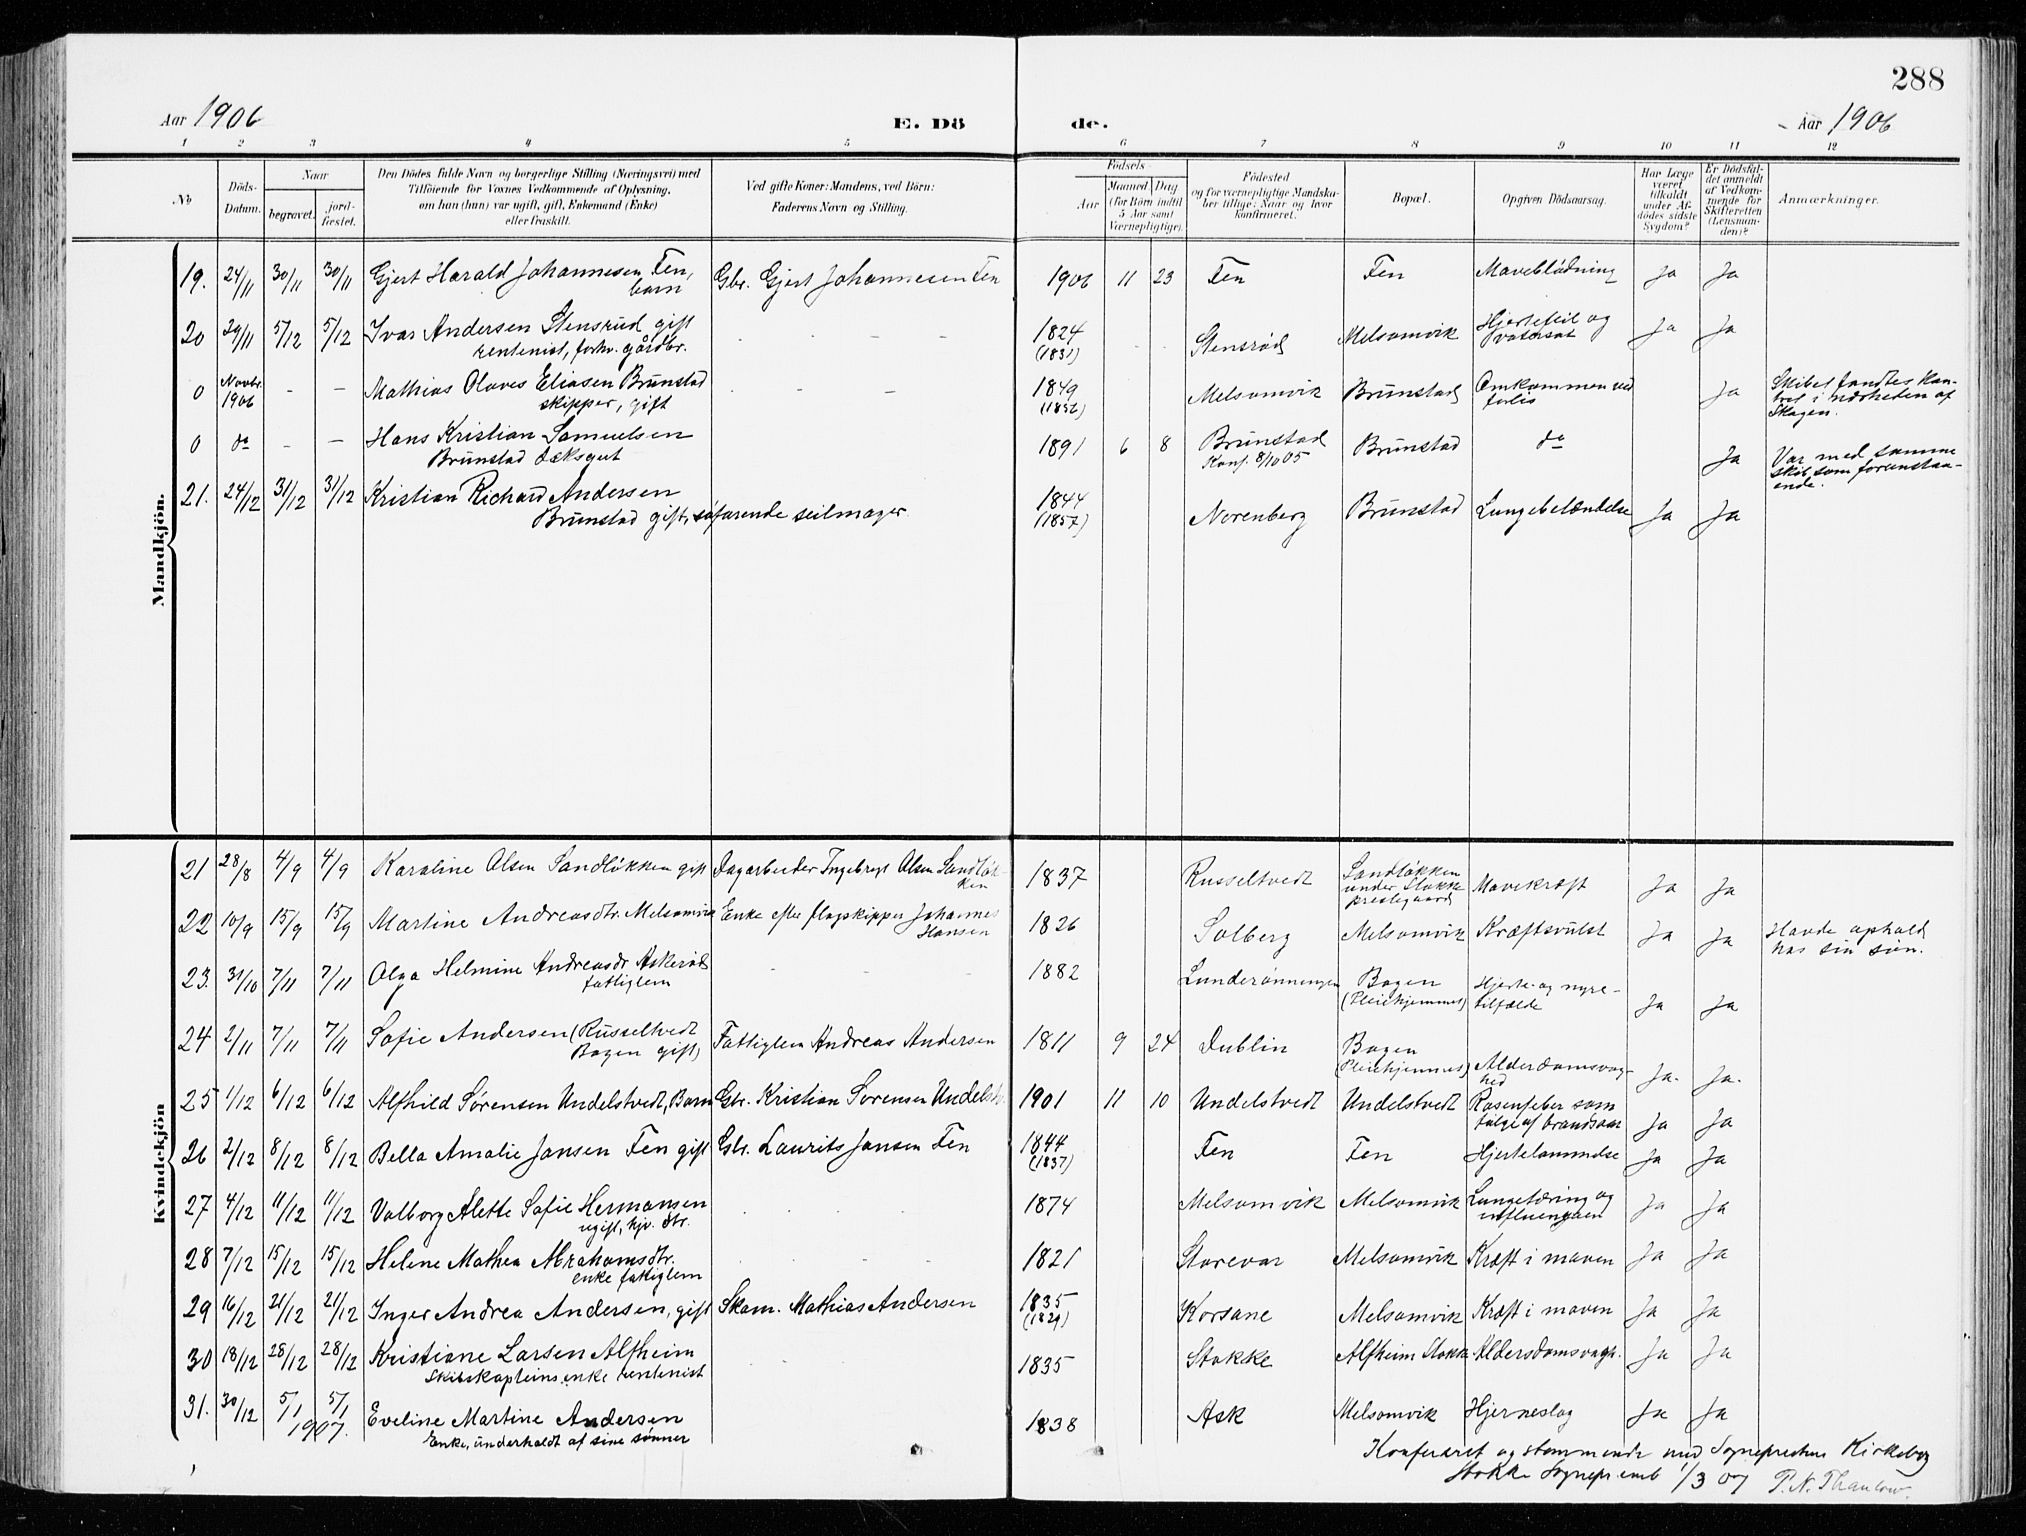 288
Aar 1906
E. Dö
de.
Aar 1906
1 2 3 4 5 6 7 8 9 10 11 12
No
Döds-Datum.
Naar
begravet.
jord-fæstet.
Den Dödes fulde Navn og borgerlige Stilling (Næringsvei) med
Tilföiende for Voxnes Vedkommende af Oplysning,
om han (hun) var ugift, gift, Enkemand (Enke)
eller fraskilt.
Ved gifte Koner: Mandens, ved Börn:
Faderens Navn og Stilling.
Födsels
Aar
Maaned Dag
(for Börn indtil
5 Aar samt
Værnepligtige).
Födested
og for værnepligtige Mandska-
ber tillige: Naar og hvor
konfirmeret.
Bopæl.
Opgiven Dödsaarsag.
Har Læge
været
tilkaldt
under Af-
dödes sidste
Sygdom?
Er Dödsfal-
det anmeldt
af Vedkom-
mende for
Skifteretten
(Lensman-
den)?
Anmærkninger.
Mandkjön.
19. 24/11 30/11 30/11 Gjert Harald Johannesen Fen, barn Gbr. Gjert Johannesen Fen 1906 11 23 Fen Fen Maveblödning Ja Ja
20 29/11 5/12 5/12 Ivar Andersen Stensrud gift - - 1824 - - Stensröd Melsomvik Hjertefeil og Ja Ja
rentenist, forhv. gårdbr. (1831) vatersot
0 Novbr. 1906 - - Mathias Olaves Eliasen Brunstad - - 1849 Melsomvik Brunstad Omkommen ved Ja Skibet fandtes kan-
skipper, gift (1856) forlis tret i nærheden af
Skagen.
0 do - - Hans Kristian Samuelsen 1891 6 8 Brunstad Brunstad do Ja Var med samme
Brunstad dæksgut Konf. 8/10 05 skib som foranstaa-
ende.
21. 24/12 31/12 31/12 Kristian Richard Andersen 1844 Norenberg Brunstad Lungebetændelse Ja Ja
Brunstad gift, söfarende seilmager (1857)
Kvindekjön
21 28/8 4/9 4/9 Karoline Olsen Sandløkken gift Dagarbeider Ingebregt Olsen Sandløk-ken 1837 Russeltvedt Sandløkken under Stokke prestegaard Mavekræft Ja Ja
22 10/9 15/9 15/9 Martine Andreasdtr. Melsomvik Enke efter flagskipper Johannes Hansen 1826 Solberg Melsomvik Kræftsvulst Ja Ja Havde ophold
hos sin sön.
23. 31/10 7/11 7/11 Olga Helmine Andreasdr Askeröd - - 1882 Lunderönningen Bogen Hjerte- og nyre- Ja Ja
fattiglem (Pleiehjemmet) tilfælde
24 2/11 7/11 7/11 Sofie Andersen (Russeltvedt Fattiglem Andreas Andersen 1811 9 24 Dublin Bogen Alderdomsvag- Ja. Ja.
Bogen gift) (Pleiehjemmet) hed
25 1/12 6/12 6/12 Alfhild Sørensen Undelstvedt, Barn Gbr. Kristian Sørensen Undelstv. 1901 11 10 Undelstvedt Undelstvedt Rosenfeber som Ja Ja
følge af brandsaar
26 2/12 8/12 8/12 Bella Amalie Jansen Fen gift Gbr. Laurits Jansen Fen 1844 Fen Fen Hjertelammelse Ja Ja
(1837)
27 4/12 11/12 11/12 Valborg Alette Sofie Hermansen - - 1874 Melsomvik Melsomvik Lungetæring og Ja Ja
ugift, hjv. dtr. influenzaen
28 7/12 15/12 15/12 Helene Mathea Abrahamsdtr. - - 1821 Storevar Melsomvik Kræft i maven Ja Ja
enke fattiglem
29 16/12 21/12 21/12 Inger Andrea Andersen, gift Skom. Mathias Andersen 1835 Korsane Melsomvik Kræft i maven Ja Ja
(1829)
30 18/12 28/12 28/12 Kristiane Larsen Alfheim 1835 Stokke Alfheim Stokke Aldersdomsvagh. Ja Ja
Skibskapteins enke rentenist
31. 30/12 5/1 5/1 1907. Eveline Martine Andersen 1838 Ask Melsomvik Hjerneslag Ja Ja
Enke, underholdt af sine sønner
Konfereret og stemmende med Sogneprestens Kirkebog
Stokke Sognepr.emb 1/3 07 P. N. Thaulow.